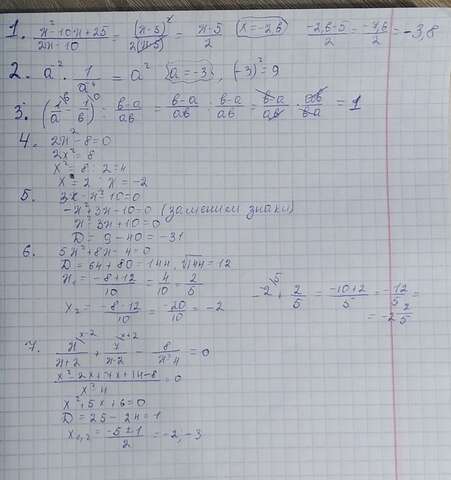 1. x²-10x+25 / 2x-10 = (x-5)² / 2(x-5) = x-5 / 2 (x=-2,6) -2,6-5 / 2 = -7,6 / 2 = -3,8
2. a² · 1 / a⁴ = a² (a=-3), (-3)²=9
3. (1/a - 1/b) : b-a / ab = b-a / ab : b-a / ab = b-a / ab · ab / b-a = 1
4. 2x²-8=0
2x²=8
x²=8:2=4
x=2 ; x=-2
5. 3x-x²-10=0
-x²+3x-10=0 (заменим знаки)
x²-3x+10=0
D=9-40=-31
6. 5x²+8x-4=0
D=64+80=144, √144=12
x₁= -8+12 / 10 = 4 / 10 = 2 / 5
x₂= -8-12 / 10 = -20 / 10 = -2
-2 + 2 / 5 = -10+2 / 5 = -12 / 5 =
= -2 2/5
7. x / x+2 + 7 / x-2 - 8 / x²-4 = 0
x²-2x+7x+14-8 / x²-4 = 0
x²+5x+6=0
D=25-24=1
x₁,₂= -5±1 / 2 = -2, -3